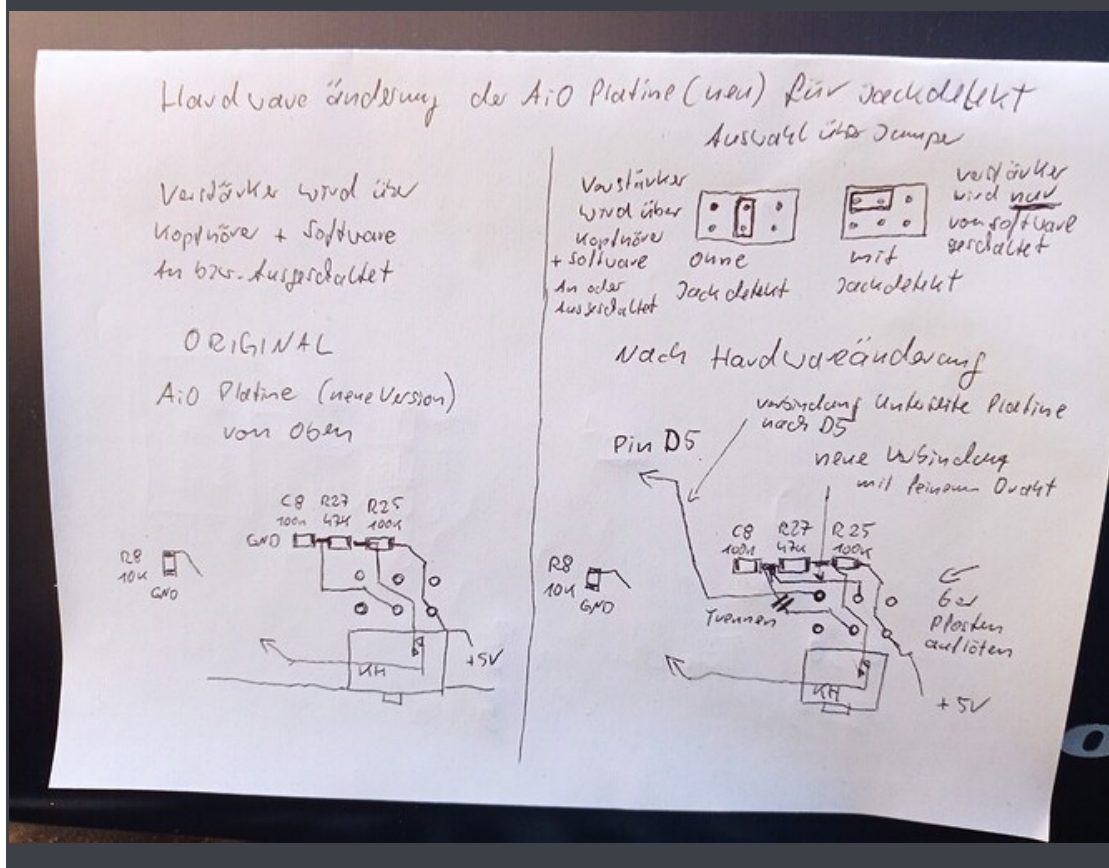 Hardware änderung der AiO Platine (neu) für Jackdetekt
Verstärker wird über
Kopfhörer + Software
An bzw. Ausgeschaltet
ORIGINAL
AiO Platine (neue Version)
von Oben
C8 R27 R25
100n 47K 100K
GND
R8
10K
GND
KH
+5V
Auswahl über Jumper
Verstärker
wird über
Kopfhörer
+ Software
An oder
Ausgeschaltet
ohne
Jackdetekt
mit
Jackdetekt
verstärker
wird nur
von software
geschaltet
Nach Hardwareänderung
verbindung Unterseite Platine
nach D5
Pin D5
neue Verbindung
mit feinem Draht
C8 R27 R25
100n 47K 100K
R8
10K
GND
Trennen
6er
Pfosten
auflöten
KH
+5V